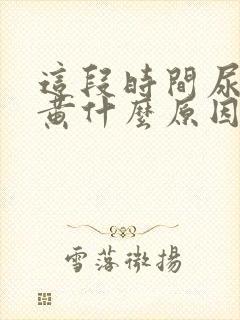 這段時間尿
黃什麼原因
雪落微揚